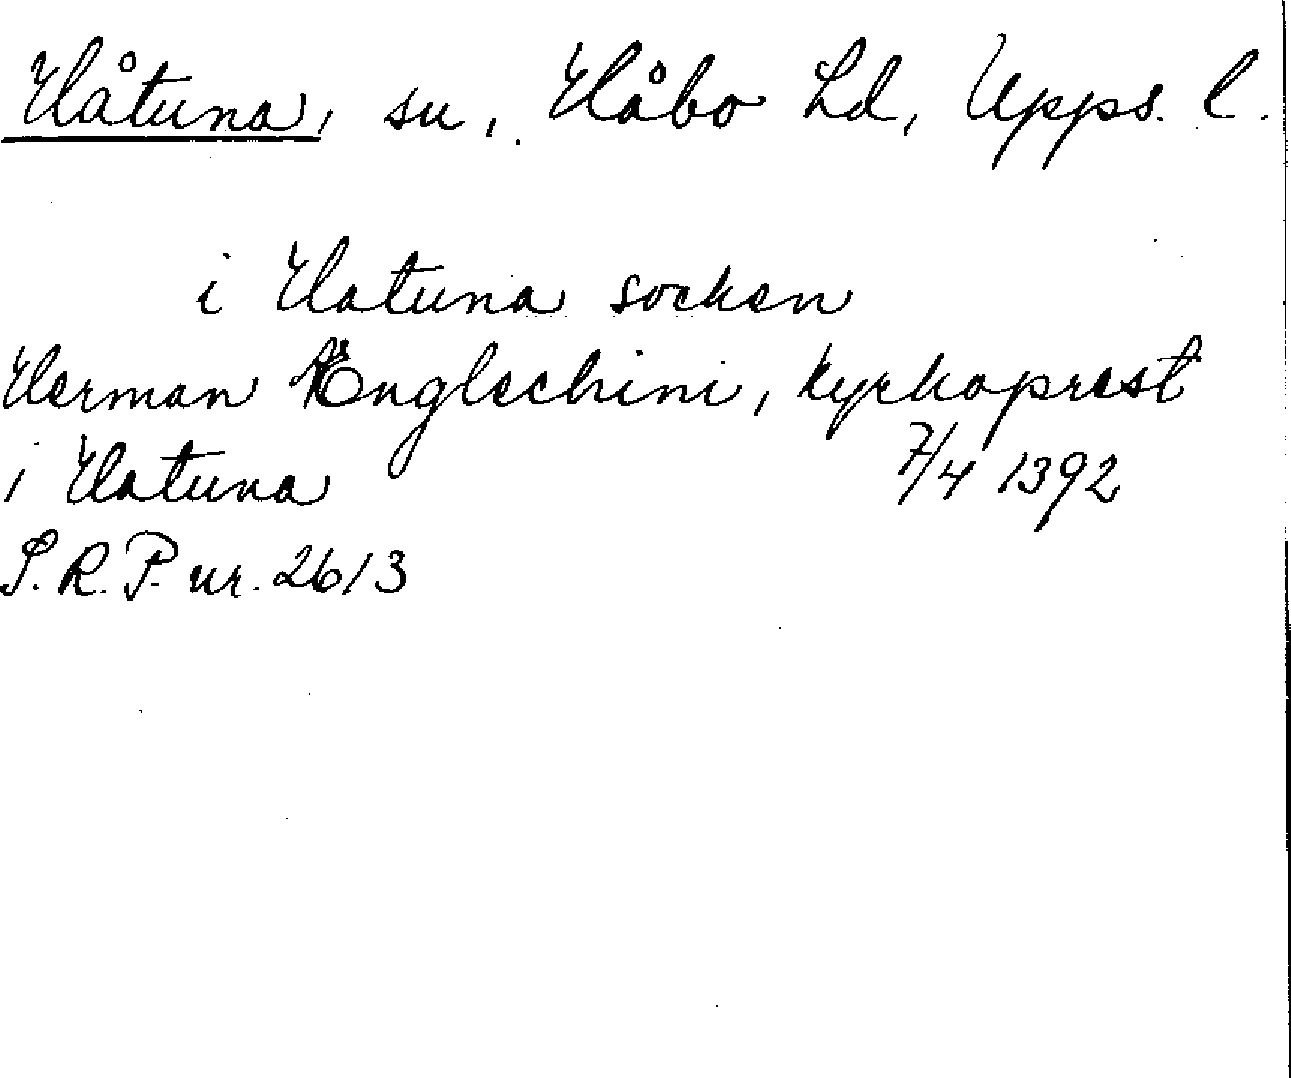 Håtuna, sn, Håbo hd, Upps. l.
i Hatuna socken
Herman Englechini, kyrkoprest
i Hatuna 7/4 1392
S.R.P. nr. 2613